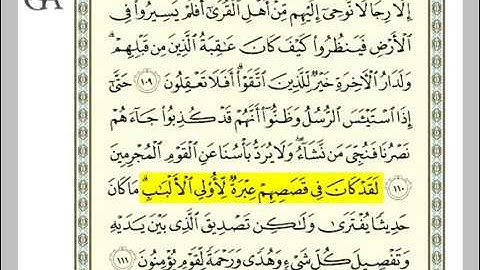 إِلَّا رِجَالًا نُّوحِىٓ إِلَيْهِم مِّنْ أَهْلِ ٱلْقُرَىٰٓ أَفَلَمْ يَسِيرُوا۟ فِى
ٱلْأَرْضِ فَيَنظُرُوا۟ كَيْفَ كَانَ عَـٰقِبَةُ ٱلَّذِينَ مِن قَبْلِهِمْ ۗ
وَلَدَارُ ٱلْـَٔاخِرَةِ خَيْرٌ لِّلَّذِينَ ٱتَّقَوْا۟ ۗ أَفَلَا تَعْقِلُونَ ١٠٩ حَتَّىٰٓ
إِذَا ٱسْتَيْـَٔسَ ٱلرُّسُلُ وَظَنُّوٓا۟ أَنَّهُمْ قَدْ كُذِبُوا۟ جَآءَهُمْ
نَصْرُنَا فَنُجِّىَ مَن نَّشَآءُ ۖ وَلَا يُرَدُّ بَأْسُنَا عَنِ ٱلْقَوْمِ ٱلْمُجْرِمِينَ
١١٠ لَقَدْ كَانَ فِى قَصَصِهِمْ عِبْرَةٌ لِّأُو۟لِى ٱلْأَلْبَـٰبِ ۗ مَا كَانَ
حَدِيثًا يُفْتَرَىٰ وَلَـٰكِن تَصْدِيقَ ٱلَّذِى بَيْنَ يَدَيْهِ
وَتَفْصِيلَ كُلِّ شَىْءٍ وَهُدًى وَرَحْمَةً لِّقَوْمٍ يُؤْمِنُونَ ١١١